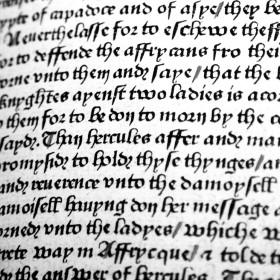 ypte of capadoce and of asye/they be
Neverthelasse for to eschewe theff
or to deffende the affrycans fro thei
orne vnto them and saye/that the k
knyghtes ayenst two ladies is acor
them for to be don to morn by the c
sayd. Than hercules affer and mar
promysid to hold thyse thynges/an
and reuerence vnto the damoysell
amoisell hauyng don her message
orned vnto the ladyes/whiche w
crete way in Affrycque/ & tolde t
by the answer of hercules. The